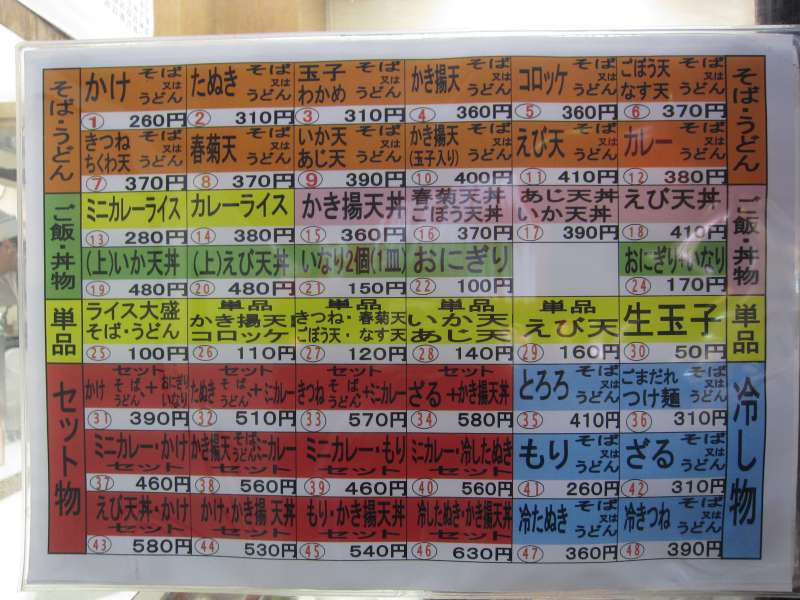 そば・うどん
かけ そば又はうどん
① 260円
たぬき そば又はうどん
② 310円
玉子 わかめ そば又はうどん
③ 310円
かき揚天 そば又はうどん
④ 360円
コロッケ そば又はうどん
⑤ 360円
ごぼう天 なす天 そば又はうどん
⑥ 370円
そば・うどん
きつね ちくわ天 そば又はうどん
⑦ 370円
春菊天 そば又はうどん
⑧ 370円
いか天 あじ天 そば又はうどん
⑨ 390円
かき揚天 (玉子入り) そば又はうどん
⑩ 400円
えび天 そば又はうどん
⑪ 410円
カレー そば又はうどん
⑫ 380円
ご飯・丼物
ミニカレーライス
⑬ 280円
カレーライス
⑭ 380円
かき揚天丼
⑮ 360円
春菊天丼
ごぼう天丼
⑯ 370円
あじ天丼
いか天丼
⑰ 390円
えび天丼
⑱ 410円
ご飯・丼物
(上)いか天丼
⑲ 480円
(上)えび天丼
⑳ 480円
いなり2個(1皿)
㉑ 150円
おにぎり
㉒ 100円
おにぎり+いなり
㉔ 170円
単品
ライス大盛
そば・うどん
㉕ 100円
単品
かき揚天
コロッケ
㉖ 110円
単品
きつね・春菊天
ごぼう天・なす天
㉗ 120円
単品
いか天
あじ天
㉘ 140円
単品
えび天
㉙ 160円
生玉子
㉚ 50円
単品
セット物
セット
かけ そばうどん+おにぎりいなり
㉛ 390円
セット
たぬき そばうどん+ミニカレー
㉜ 510円
セット
きつね そばうどん+ミニカレー
㉝ 570円
セット
ざる+かき揚天丼
㉞ 580円
とろろ そば又はうどん
㉟ 410円
ごまだれ つけ麺 そば又はうどん
㊱ 310円
冷し物
ミニカレー・かけ
セット
㊲ 460円
かき揚天そばうどんミニカレー
セット
㊳ 560円
ミニカレー・もり
セット
㊴ 460円
ミニカレー・冷したぬき
セット
㊵ 560円
もり そば又はうどん
㊶ 260円
ざる そば又はうどん
㊷ 310円
えび天丼・かけ
セット
㊸ 580円
かけ・かき揚天丼
セット
㊹ 530円
もり・かき揚天丼
セット
㊺ 540円
冷したぬき・かき揚天丼
セット
㊻ 630円
冷たぬき そば又はうどん
㊼ 360円
冷きつね そば又はうどん
㊽ 390円